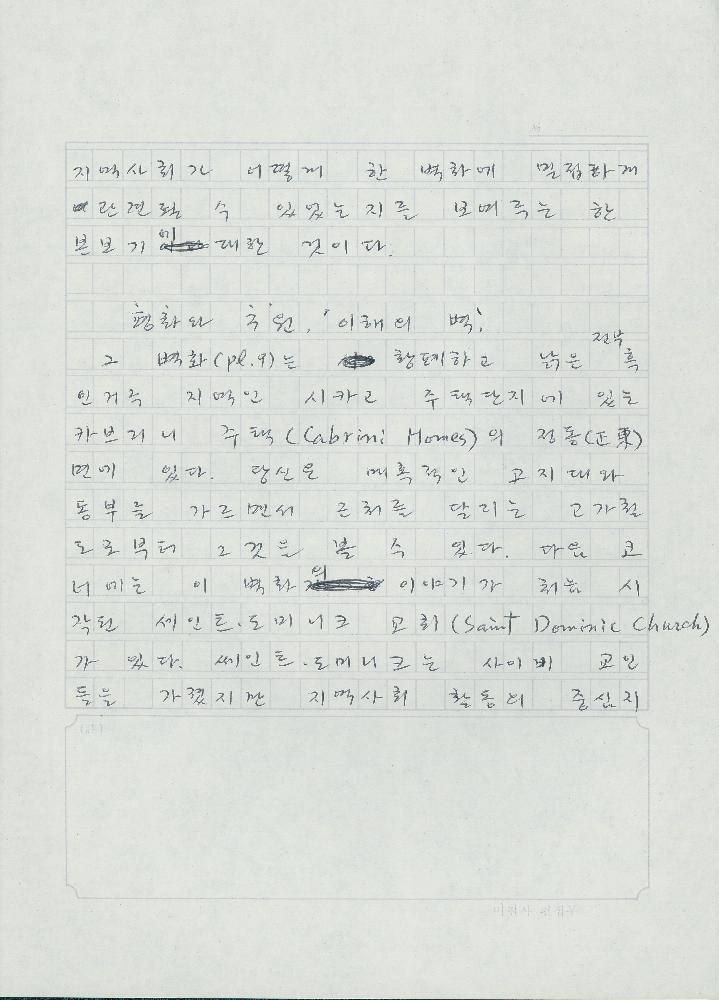 지역사회가 어떻게 한 벽화에 밀접하게
관련될 수 있었는지를 보여주는 한
본보기에 대한 것이다.
평화와 구원, '이해의 벽'
그 벽화(pl.9)는 황폐하고 낡은 전부 흑
인거주 지역인 시카고 주택단지에 있는
카브리니 주택(Cabrini Homes)의 정동(正東)
면에 있다. 당신은 매혹적인 고지대와
동부를 가르면서 근처를 달리는 고가철
도로부터 그것을 볼 수 있다. 다음 코
너에는 이 벽화의 이야기가 처음 시
작된 세인트.도미니크 교회(Saint Dominic Church)
가 있다. 쎄인트.도미니크는 사이비 교인
들을 가졌지만 지역사회 활동의 중심지